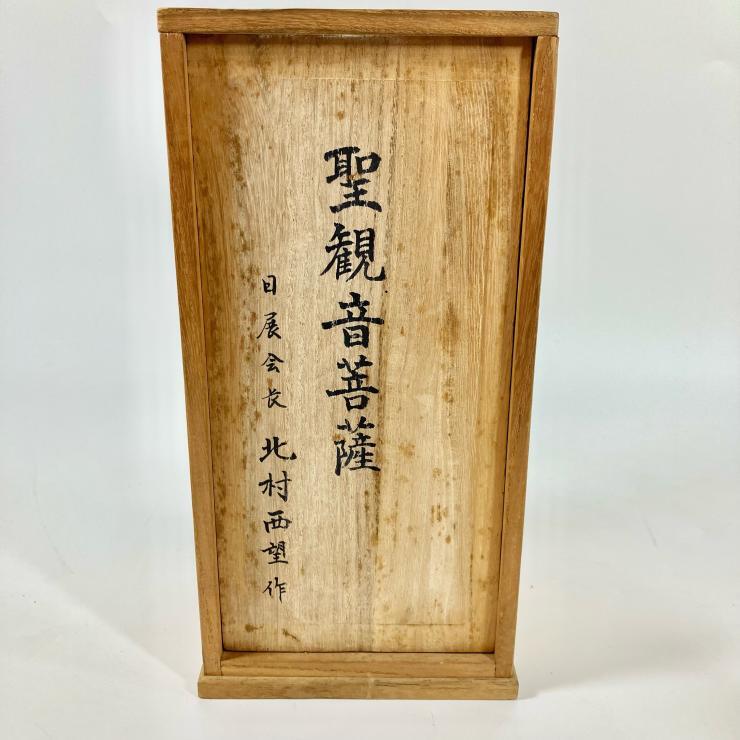 聖観音菩薩
日展会長 北村西望作